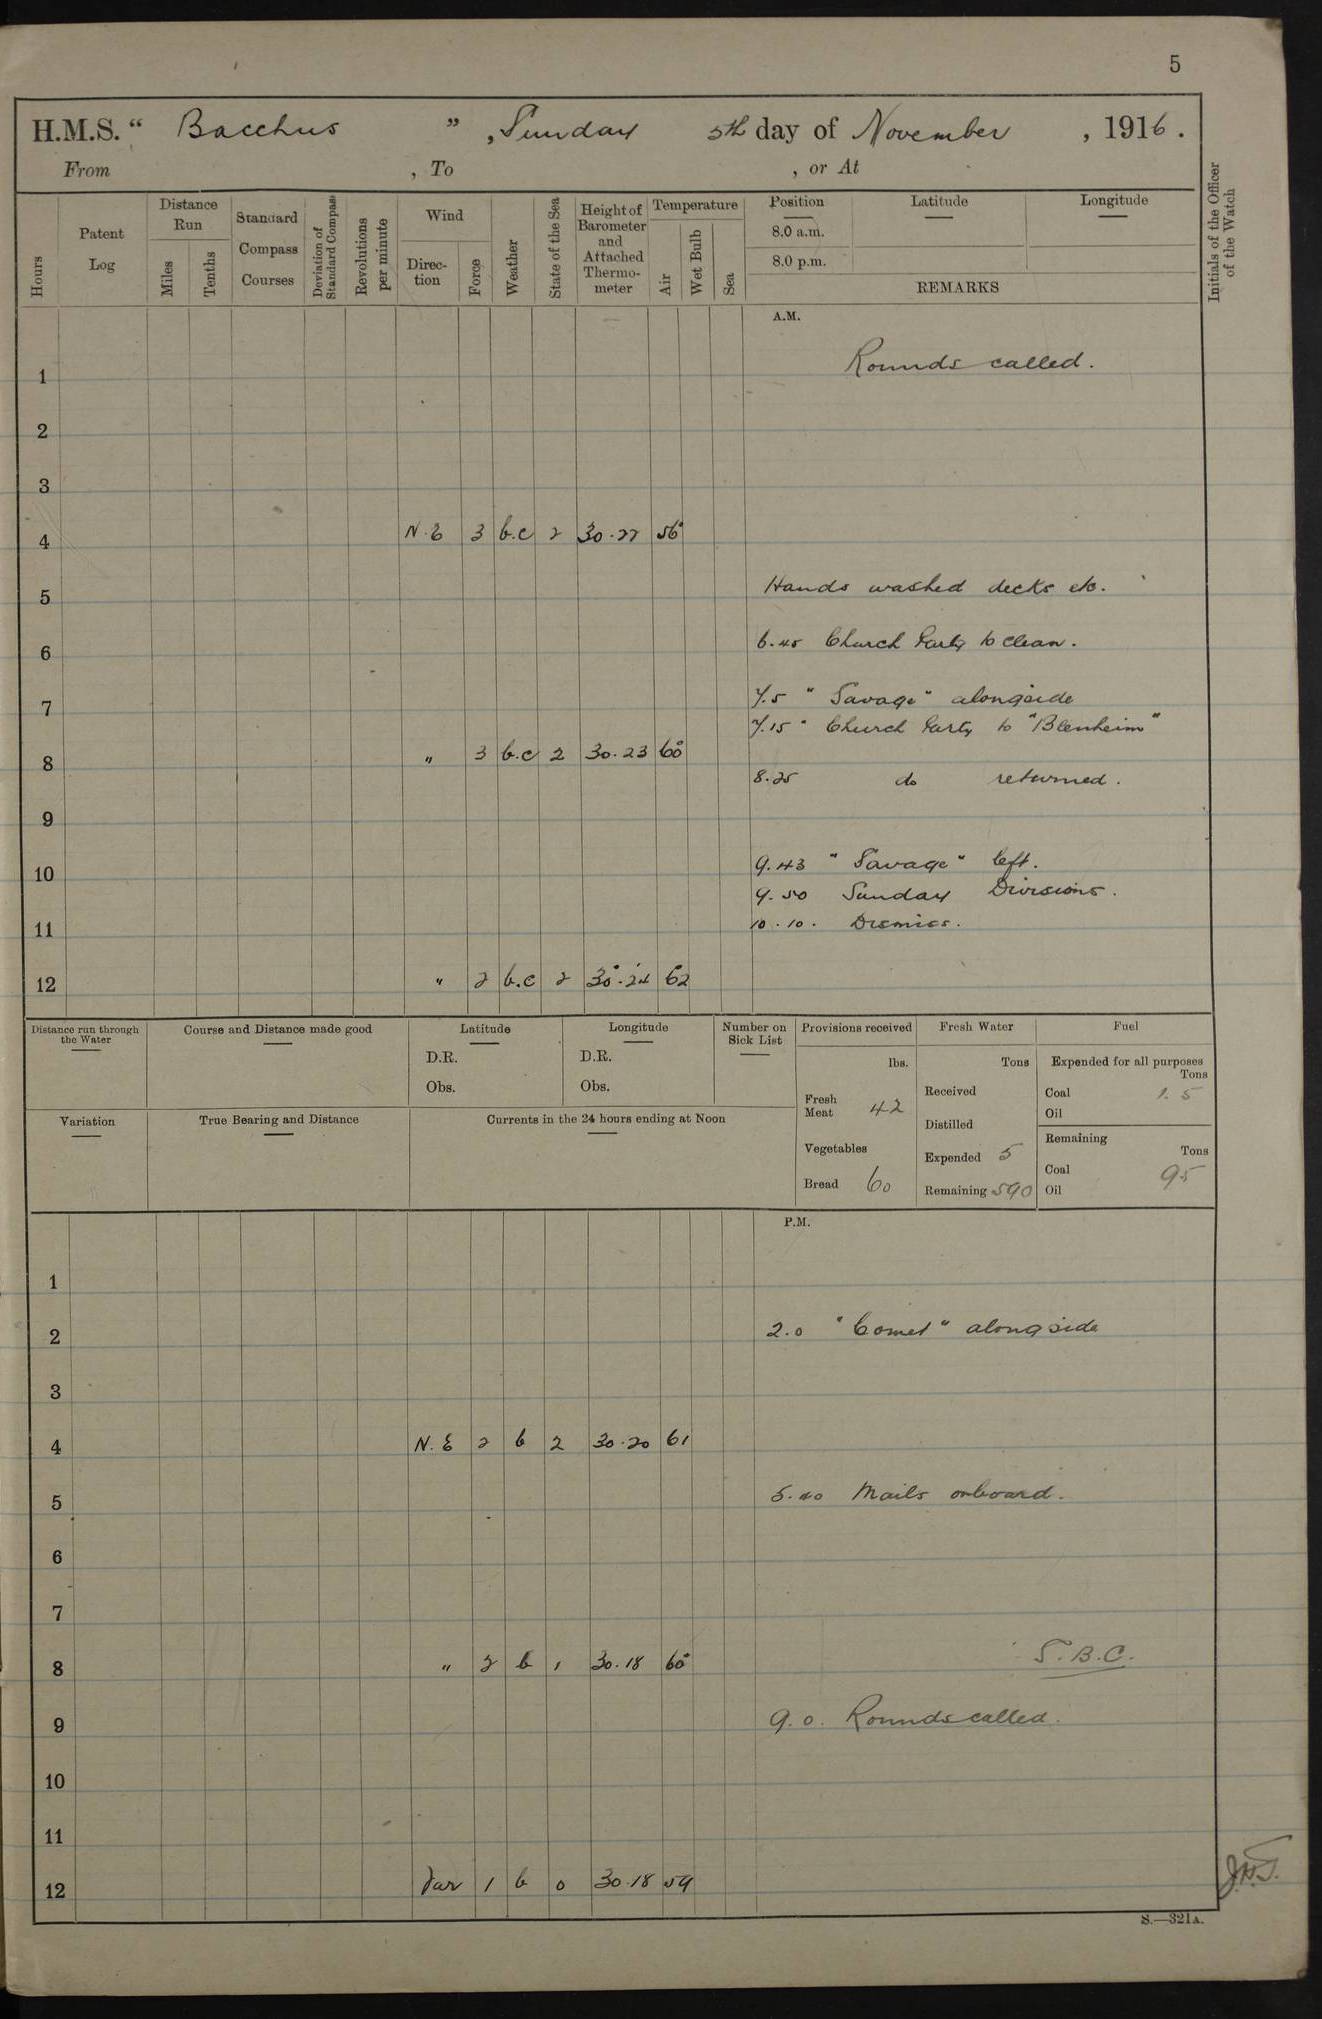 5
H.M.S. “ Bacchus ” , Sunday 5th day of November , 1916 .
From , To , or At
Hours
Patent Log
Distance Run
Miles
Tenths
Standard Compass Courses
Deviation of Standard Compass
Revolutions per minute
Wind
Direc-tion
Force
Weather
State of the Sea
Height of Barometer and Attached Thermo-meter
Temperature
Air
Wet Bulb
Sea
Position
8.0 a.m.
8.0 p.m.
Latitude
Longitude
REMARKS
Initials of the Officer of the Watch
A.M.
1 Rounds called.
2
3
4 N.E 3 b.c 2 30.22 56°
5 Hands washed decks etc.
6 6.45 Church Party to clean.
7 7.5 "Savage" alongside
7.15 Church Party to "Blenheim"
8 " 3 b.c 2 30.23 60°
8.25 do returned.
9
10 9.43 "Savage" left.
9.50 Sunday Divisions.
11 10.10. Dismiss.
12 " 2 b.c 2 30.24 62
Distance run through the Water
Course and Distance made good
Latitude
D.R.
Obs.
Longitude
D.R.
Obs.
Number on Sick List
Provisions received
lbs.
Fresh Meat 42
Vegetables
Bread 60
Fresh Water
Tons
Received
Distilled
Expended 5
Remaining 590
Fuel
Expended for all purposes
Tons
Coal 1.5
Oil
Remaining
Tons
Coal 95
Oil
Variation
True Bearing and Distance
Currents in the 24 hours ending at Noon
P.M.
1
2 2.0 "Comet" alongside
3
4 N.E 2 b 2 30.20 61
5 5.40 Mails onboard.
6
7
8 " 2 b 1 30.18 60° S.B.C.
9 9.0. Rounds called.
10
11
12 Var 1 b 0 30.18 59
S.—321A.